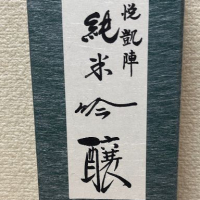 悦凱陣
純米吟醸